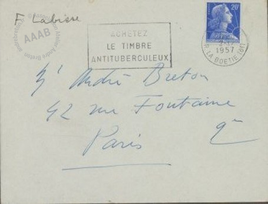 F Labisse
AAAB
ACHETEZ
LE TIMBRE
ANTITUBERCULEUX
20F
1957
LA BOETIE
Mr André Breton
42 rue Fontaine
Paris
9e